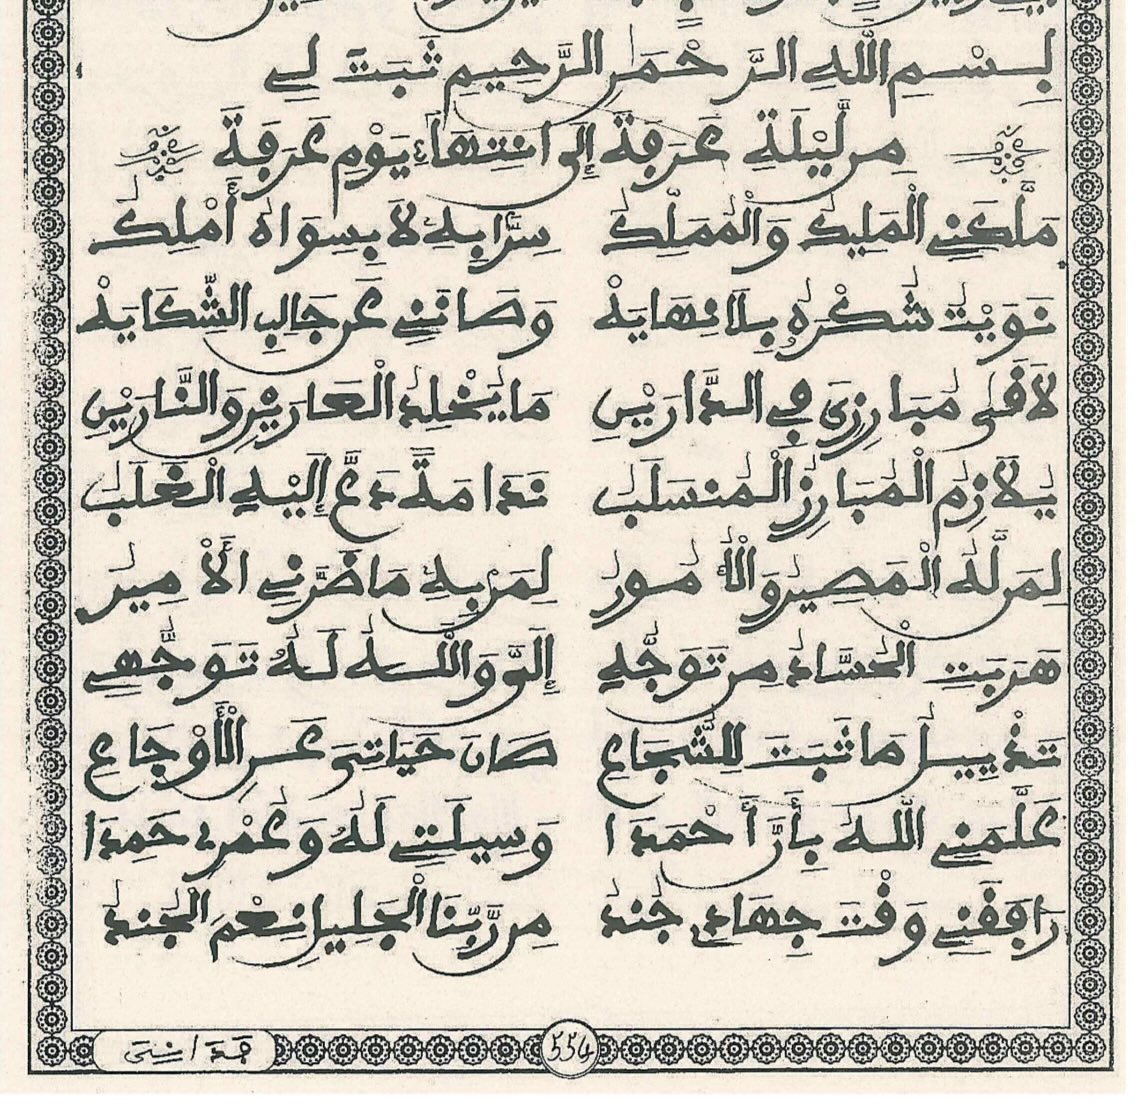 بِسْمِ اللَّهِ الرَّحْمَنِ الرَّحِيمِ ثَبَتَ لِي
مِن لَّيْلَةِ عَرَفَةَ إِلَى انتِهَاءِ يَوْمِ عَرَفَةَ
مَلَّكَنِي الْمَلِيكُ وَالْمُمَلِّكُ سِرًّا بِهِ لاَ بِسِوَاهُ أَمْلِكُ
نَوَيْتُ شُكْرَهُ بِلاَ نِهَايَهْ وَصَانَنِي عَن جَالِبِ الشِّكَايَهْ
لاَقَى مُبَارِزِي فِي الدَّارَيْنِ مَا يُخْلِدُ الْعَارَيْنِ وَالنَّارَيْنِ
يُلاَزِمُ الْمُبَارِزُ الْمُنسَلِبُ نَدَامَةً دَعَّ إِلَيْهِ الْغَلَبُ
لِمَن لَّهُ الْمَصِيرُ وَالأُمُورُ لِمَن بِهِ مَا ضَرَّنِي الأَمِيرُ
هَرَبَتِ الْحُسَّادُ مِن تَوَجُّهِ إِلَىَّ وَاللَّهُ لَهُ تَوَجُّهِي
تَذْيِيلُ مَا ثَبَتَ لِلشُّجَاعِ صَانَ حَيَاتِي عَنِ الأَوْجَاعِ
عَلَّمَنِي اللَّهُ بِأَنَّ أَحْمَدَا وَسِيلَتِي لَهُ وَعُمْرِي حُمِدَا
رَافَقَنِي وَقْتَ جِهَادِي جُندُ مِن رَّبِّنَا الْجَلِيلِ نِعْمَ الْجُندُ
554